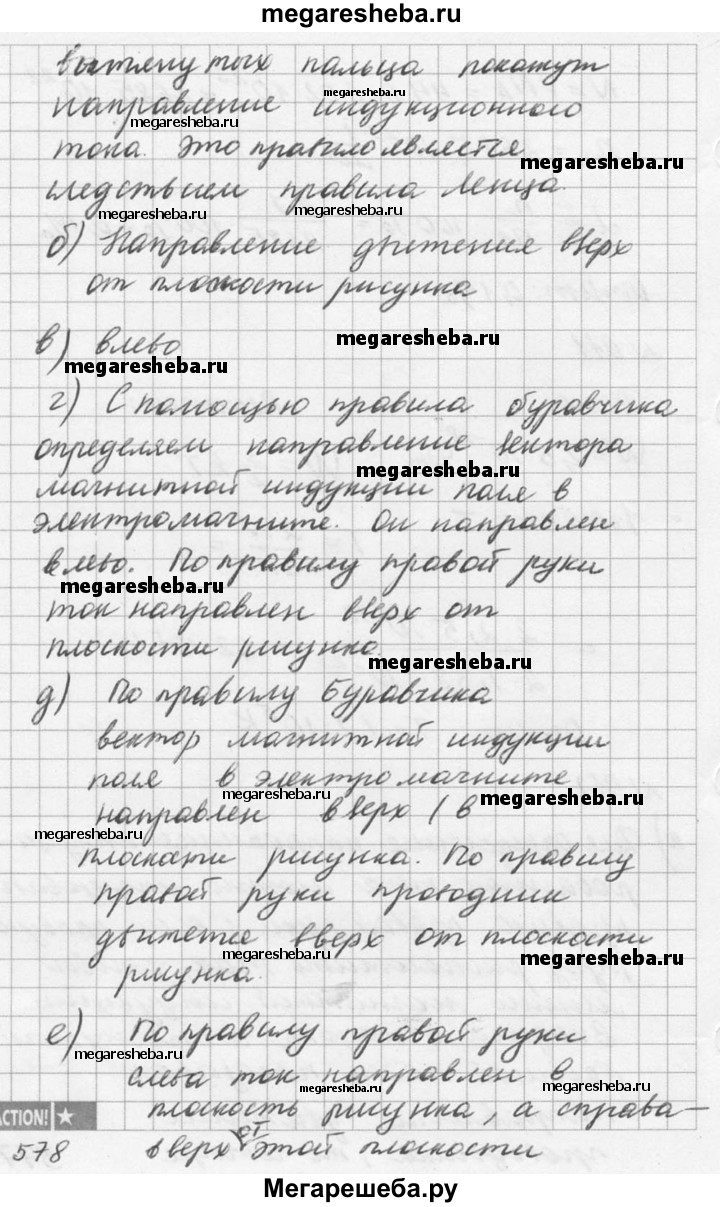 megaresheba.ru
вытянутых пальца покажут
megaresheba.ru
направление индукционного
megaresheba.ru
тока. Это правило является
megaresheba.ru
следствием правила Ленца.
megaresheba.ru megaresheba.ru
б) Направление движения вверх
от плоскости рисунка
в) влево
megaresheba.ru
megaresheba.ru
г) С помощью правила буравчика
определяем направление вектора
megaresheba.ru
магнитной индукции поля в
электромагните. Он направлен
влево. По правилу правой руки
megaresheba.ru
ток направлен вверх от
плоскости рисунка.
megaresheba.ru
д) По правилу Буравчика
вектор магнитной индукции
поля в электромагните
megaresheba.ru megaresheba.ru
направлен вверх (в
megaresheba.ru
плоскости рисунка. По правилу
правой руки проводник
движется вверх от плоскости
megaresheba.ru megaresheba.ru
рисунка.
е) По правилу правой руки
megaresheba.ru
слева ток направлен в
megaresheba.ru megaresheba.ru
плоскость рисунка, а справа –
ACTION!
578 вверх от этой плоскости
Мегарешеба.ру